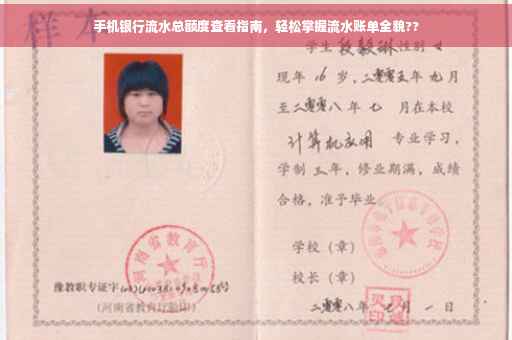 手机银行流水总额度查看指南，轻松掌握流水账单全貌??
样本
学生段毅琳性别女
现年16岁，二零零五年九月
至二零零八年七月在本校
计算机应用 专业学习，
学制三年，修业期满，成绩
合格，准予毕业
学校（章）
校长（章）
二零零八年七月一日
河南省教育厅
豫教职专证字
（河南省教育厅验印）